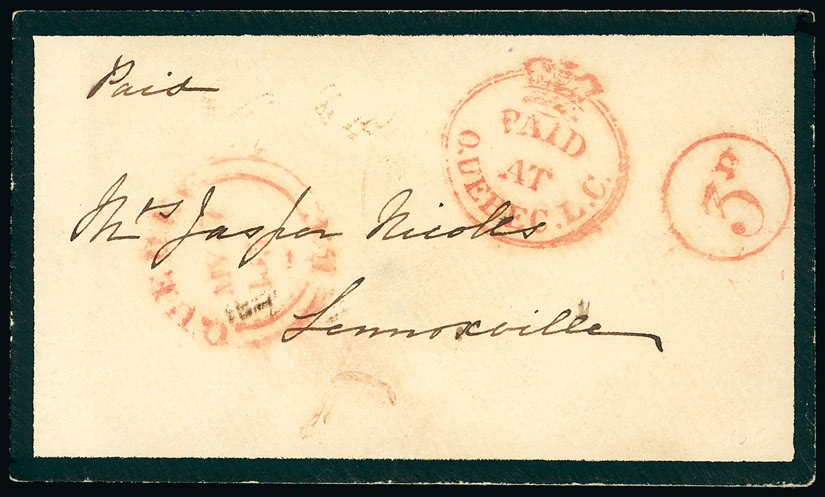 Paid
PAID
AT
QUEBEC. L.C.
3
Mrs Jasper Nicolls
Lennoxville